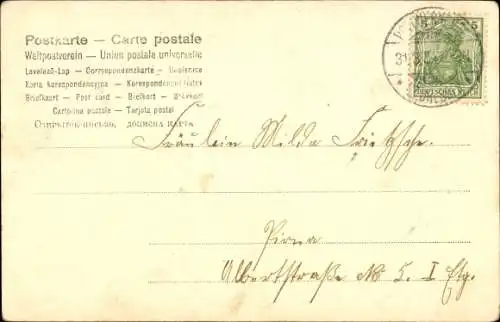 Postkarte — Carte postale
Weltpostverein — Union postale universelle
Levelező-Lap — Correspondenzkarte — Dopisnice
Karta korespondencyjna — Korespondenční lístek
Briefkaart — Post card — Brefkort — Brevkort
Cartolina postale — Tarjeta postal
Открытое письмо, дописна карта
5 5
DEUTSCHES REICH
31
Fräulein Milda Fritzsche.
Pirna
Albertstraße No 5. I Etg.